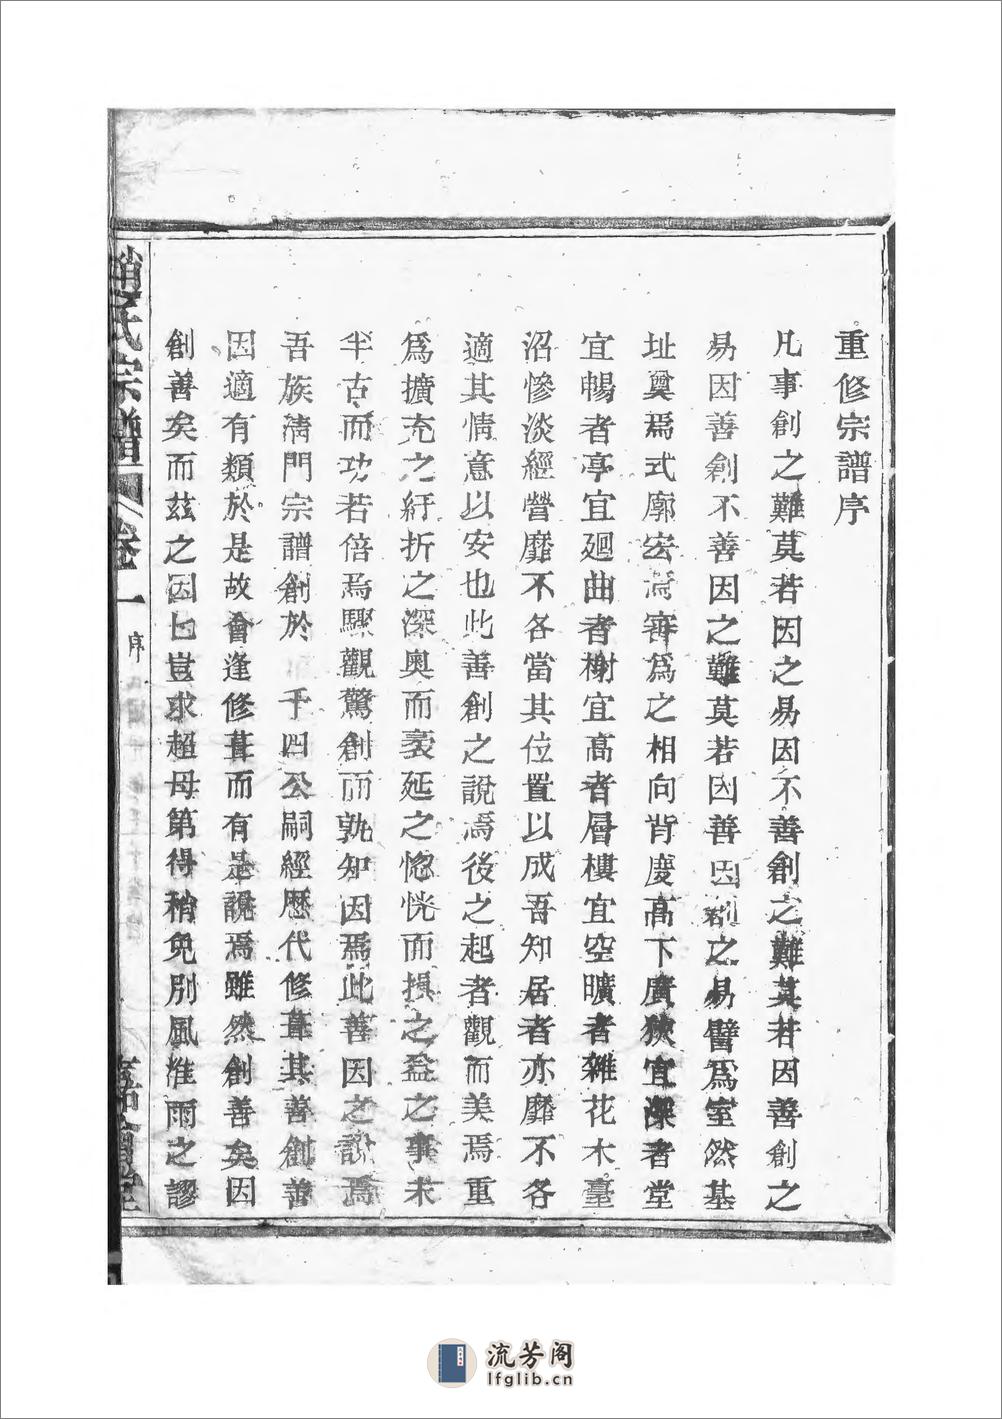 重修宗譜序
凡事創之難莫若因之易因不善創之難莫若因善創之
易因善創不善因之難莫若因善因創之易譬爲室然基
址奠焉式廓宏焉審爲之相向背慶高下廣狹宜深者堂
宜暢者亭宜廻曲者榭宜高者層樓宜空曠者雜花木臺
沼慘淡經營靡不各當其位置以成吾知居者亦靡不各
適其情意以安也此善創之說焉後之起者觀而美焉重
爲擴充之紆折之深奥而袤延之惚恍而損之益之事未
半古而功若倍焉驟觀驚創而孰知因焉此善因之說焉
吾族清門宗譜創於 千四公嗣經歷代修葺其善創善
因適有類於是故會逢修葺而有是說焉雖然創善矣因
創善矣而茲之因也豈求超毋第得稍免別風淮雨之謬
趙氏宗譜 卷一 序
流芳阁
lfglib.cn